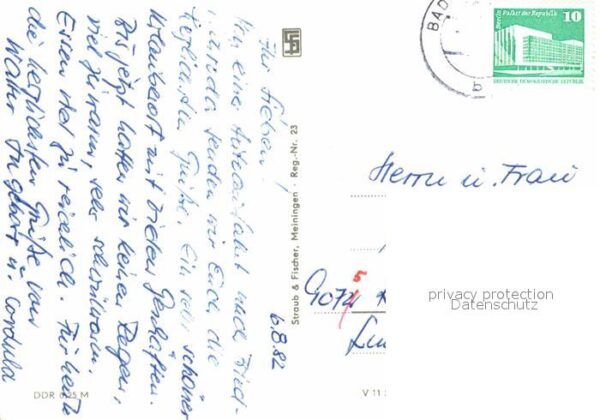 6.8.82
Ihr Lieben!
Von einer Autoausfahrt nach Fried-
senden wir Euch die
herzlichsten Grüße. Ein sehr schöner
Urlauberort mit vielen Geschäften.
Bis jetzt hatten wir keinen Regen,
viel zu warm, sehr schwül warm.
Essen viel zu reichlich. Für heute
die herzlichsten Grüße von
Walter Ingeborg u. Cordula
DDR 0,25 M
Straub & Fischer, Meiningen · Reg.-Nr. 23
V 11
BAD
Berlin Palast der Republik
10
DEUTSCHE DEMOKRATISCHE REPUBLIK
Herrn u. Frau
5
privacy protection
Datenschutz